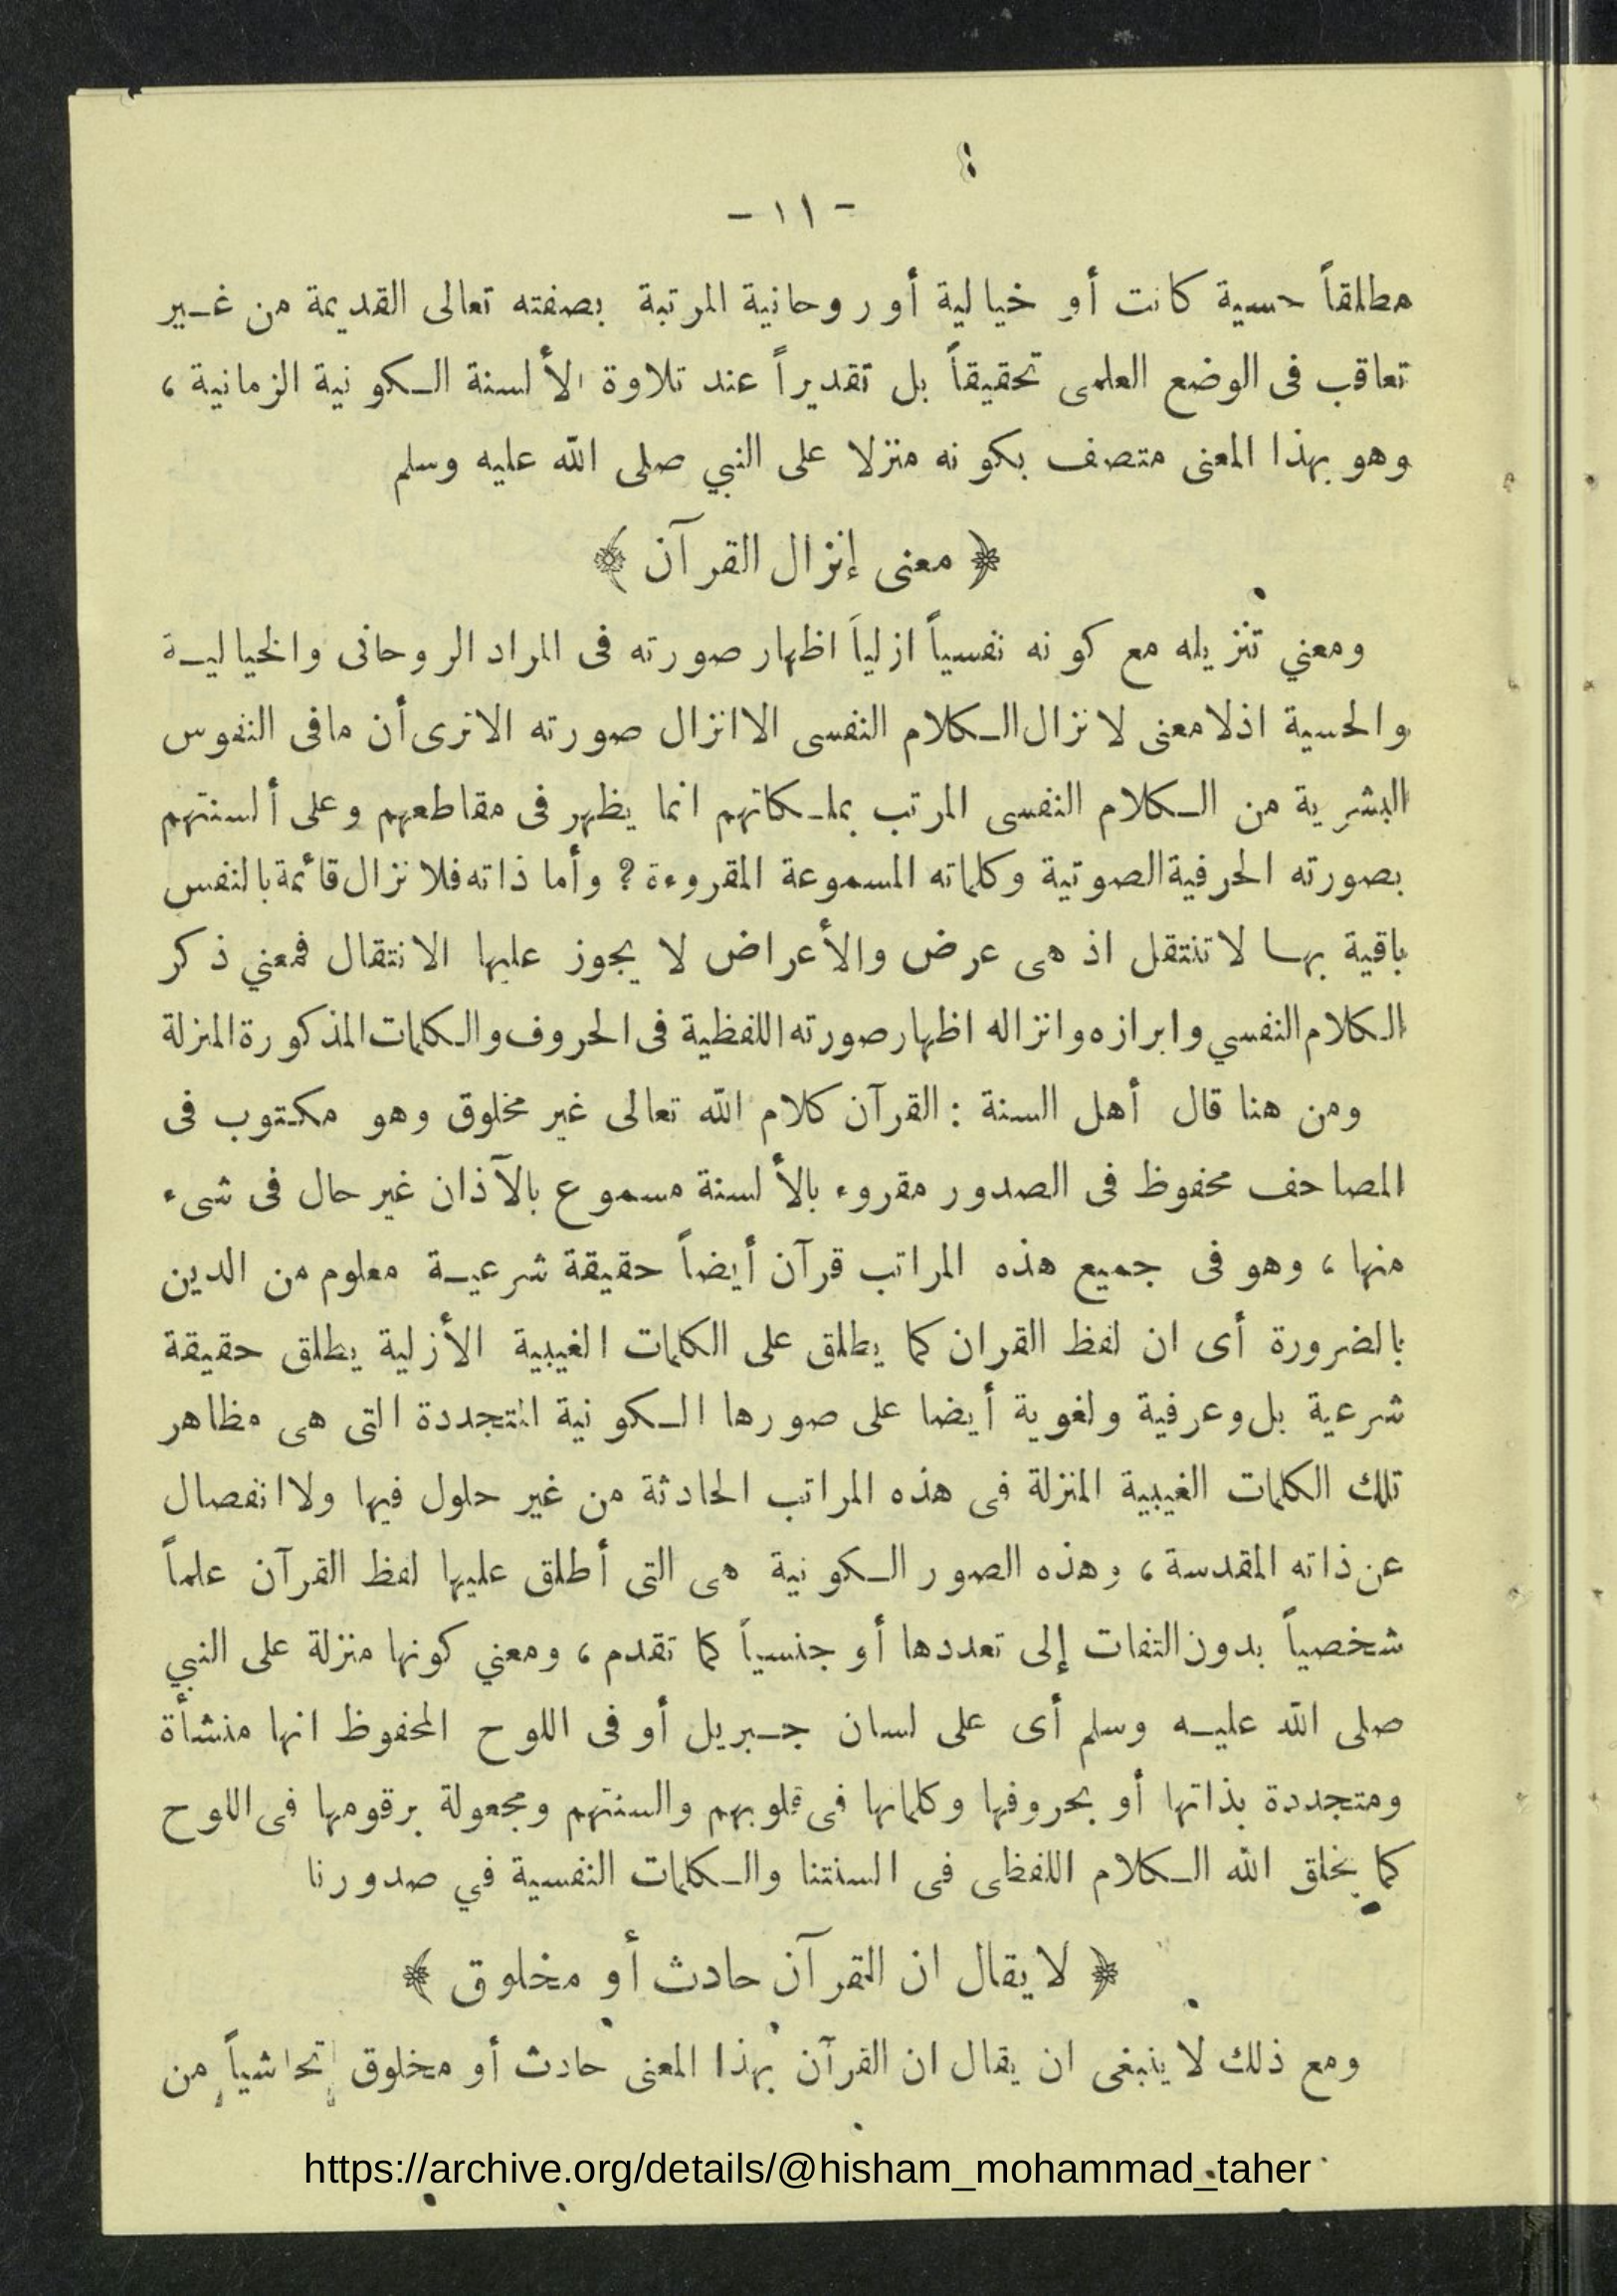 - ١١ -
مطلقاً حسية كانت أو خيالية أو روحانية المرتبة بصفته تعالى القديمة من غير
تعاقب فى الوضع العلمى تحقيقاً بل تقديراً عند تلاوة الألسنة الكونية الزمانية ،
وهو بهذا المعنى متصف بكونه منزلا على النبي صلى الله عليه وسلم
﴿ معنى إنزال القرآن ﴾
ومعني تنزيله مع كونه نفسياً ازلياً اظهار صورته فى المراد الروحانى والخيالية
والحسية اذلا معنى لانزال الكلام النفسى الا انزال صورته الا ترى أن مافى النفوس
البشرية من الكلام النفسى المرتب بملكاتهم انما يظهر فى مقاطعهم وعلى ألسنتهم
بصورته الحرفية الصوتية وكلماته المسموعة المقروءة ? وأما ذاته فلا تزال قائمة بالنفس
باقية بها لاتنتقل اذ هى عرض والأعراض لا يجوز عليها الانتقال فمعني ذكر
الكلام النفسي وابرازه وانزاله اظهار صورته اللفظية فى الحروف والكلمات المذكورة المنزلة
ومن هنا قال أهل السنة : القرآن كلام الله تعالى غير مخلوق وهو مكتوب فى
المصاحف محفوظ فى الصدور مقروء بالألسنة مسموع بالآذان غير حال فى شىء
منها ، وهو فى جميع هذه المراتب قرآن أيضاً حقيقة شرعية معلوم من الدين
بالضرورة أى ان لفظ القران كما يطلق على الكلمات الغيبية الأزلية يطلق حقيقة
شرعية بل وعرفية ولغوية أيضا على صورها الكونية المتجددة التى هى مظاهر
تلك الكلمات الغيبية المنزلة فى هذه المراتب الحادثة من غير حلول فيها ولا انفصال
عن ذاته المقدسة ، وهذه الصور الكونية هى التى أطلق عليها لفظ القرآن علماً
شخصياً بدون التفات إلى تعددها أو جنسياً كما تقدم ، ومعني كونها منزلة على النبي
صلى الله عليه وسلم أى على لسان جبريل أو فى اللوح المحفوظ انها منشأة
ومتجددة بذاتها أو بحروفها وكلماتها فى قلوبهم والسنتهم ومجعولة برقومها فى اللوح
كما يخلق الله الكلام اللفظى فى السنتنا والكلمات النفسية في صدورنا
﴿ لا يقال ان القرآن حادث أو مخلوق ﴾
ومع ذلك لا ينبغى ان يقال ان القرآن بهذا المعنى حادث أو مخلوق تحاشياً من
https://archive.org/details/@hisham_mohammad_taher